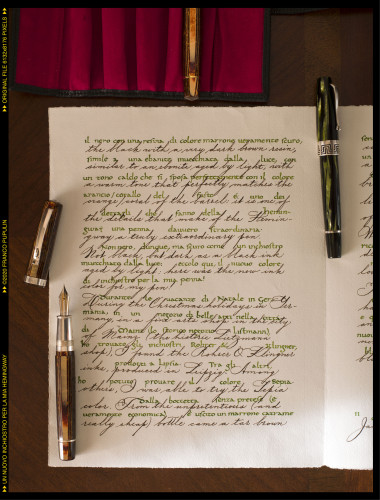 il nero con una resina di colore marrone veramente scuro,
the black with a very dark brown resin,
simile a una ebanite invecchiata dalla luce, con
similar to an ebonite aged by light, with
un tono caldo che si sposa perfettamente con il colore
a warm tone that perfectly matches the
arancio/corallo del fusto è uno dei
orange/coral of the barrel is one of
dettagli che fanno della Heming-
the details that make of the Heming-
way una penna davvero straordinaria.
way a truly extraordinary pen.
Non nero, dunque, ma scuro come un inchiostro
Not black, but dark as a black ink
invecchiato dalla luce: ecco qui il nuovo colore
aged by light: here was the new ink
di inchiostro per la mia penna!
color for my pen!
Durante le vacanze di Natale in Ger-
During the Christmas holidays in Ger-
mania, in un negozio di belle arti nella città
many in a fine arts shop in the city
di Mainz (lo storico negozio
of Mainz (the historic
ho trovato gli inchiostri Rohrer & Klingner,
shop), I found the Rohrer & Klingner
prodotti a Lipsia. Tra gli altri,
inks, produced in Leipzig. Among
ho potuto provare il colore Sepia.
others, I was able to try the sepia
Dalla boccetta senza pretese (e
color. From the unpretentious (and
veramente economica) è uscito un marrone catrame
really cheap) bottle came a tar brown
▶▶ ORIGINAL FILE 6132x8176 PIXELS
©2020 FRANCO PUPULIN
▶▶ UN NUOVO INCHIOSTRO PER LA MIA HEMINGWAY